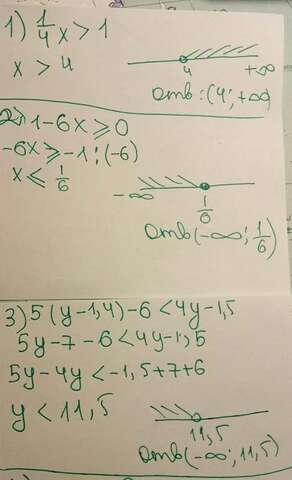 1) 1/4 x > 1
x > 4
4 +∞
Ответ: (4; +∞)
2) 1-6x ≥ 0
-6x ≥ -1 : (-6)
x ≤ 1/6
-∞ 1/6
Ответ (-∞; 1/6)
3) 5(y-1,4)-6 < 4y-1,5
5y-7-6 < 4y-1,5
5y-4y < -1,5+7+6
y < 11,5
11,5
Ответ (-∞; 11,5)